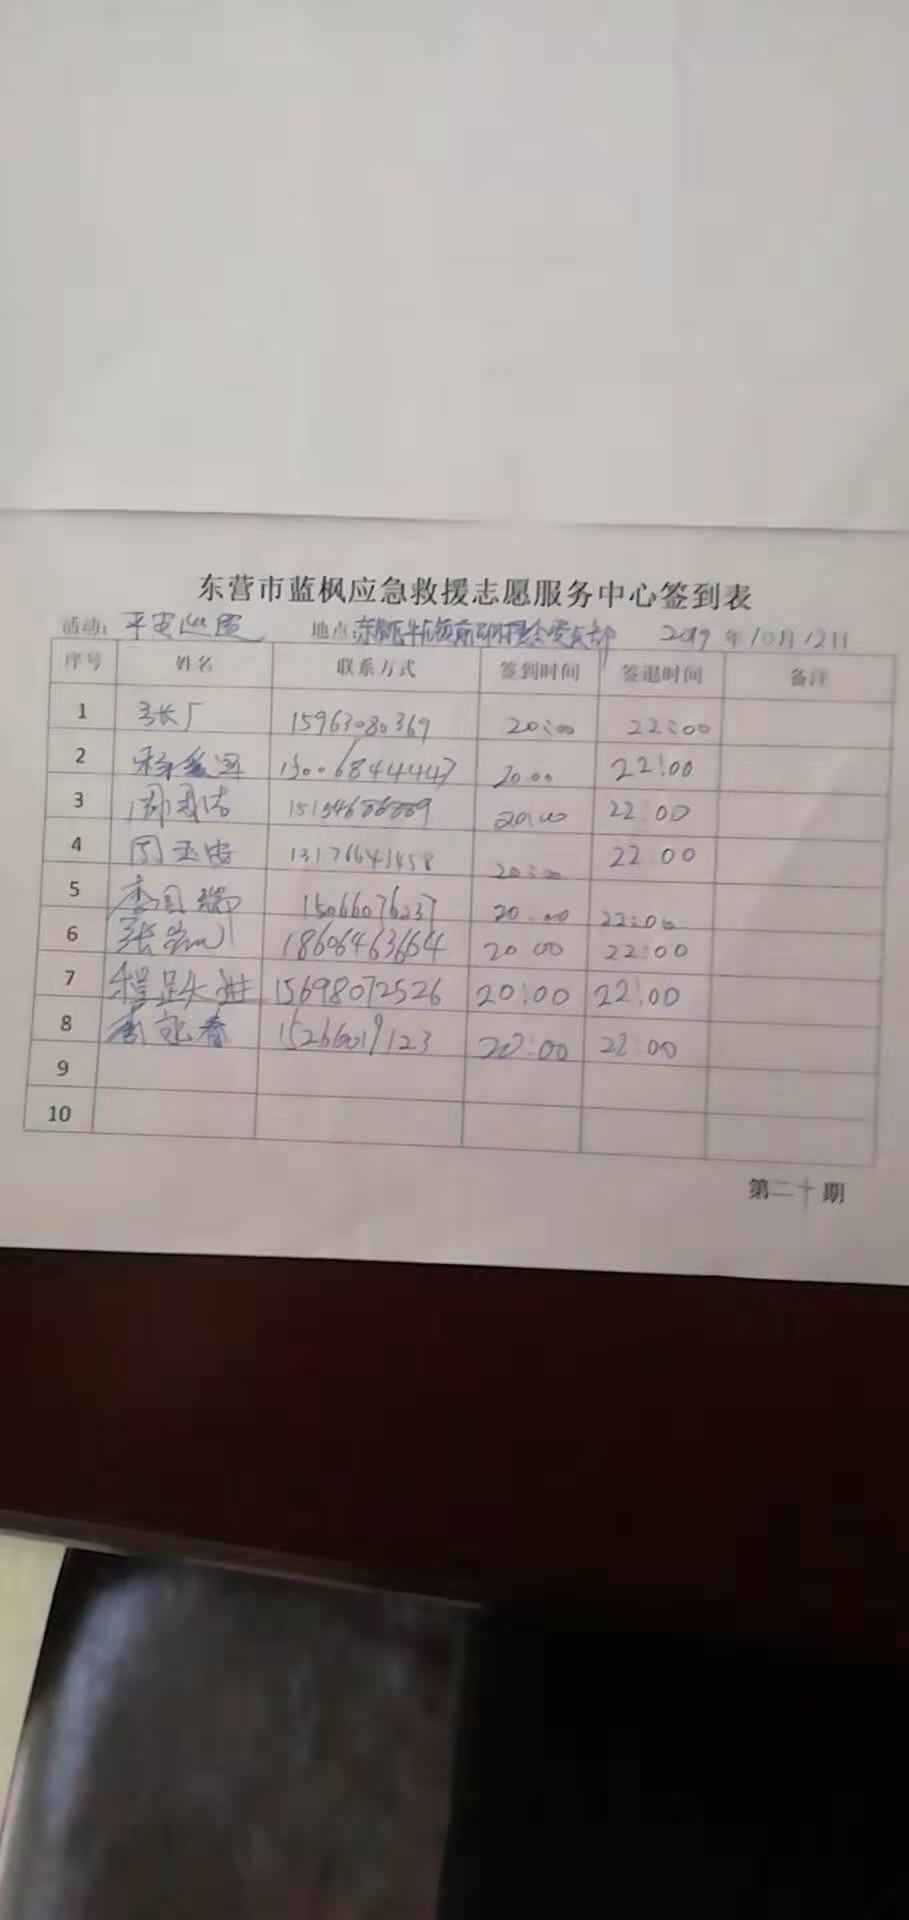 东营市蓝枫应急救援志愿服务中心签到表
活动: 平安巡逻 地点: 2019 年 10月 12日
序号 姓名 联系方式 签到时间 签退时间 备注
1 张厂 15963080369 20:00 22:00
2 15006844447 20:00 22:00
3 15154686889 20:00 22:00
4 周玉忠 20:00 22:00
5 李国瑞 15066076237 20:00 22:00
6 张 18606463664 20:00 22:00
7 程跃进 15698072526 20:00 22:00
8 李永春 15266019123 20:00 22:00
9
10
第二十期